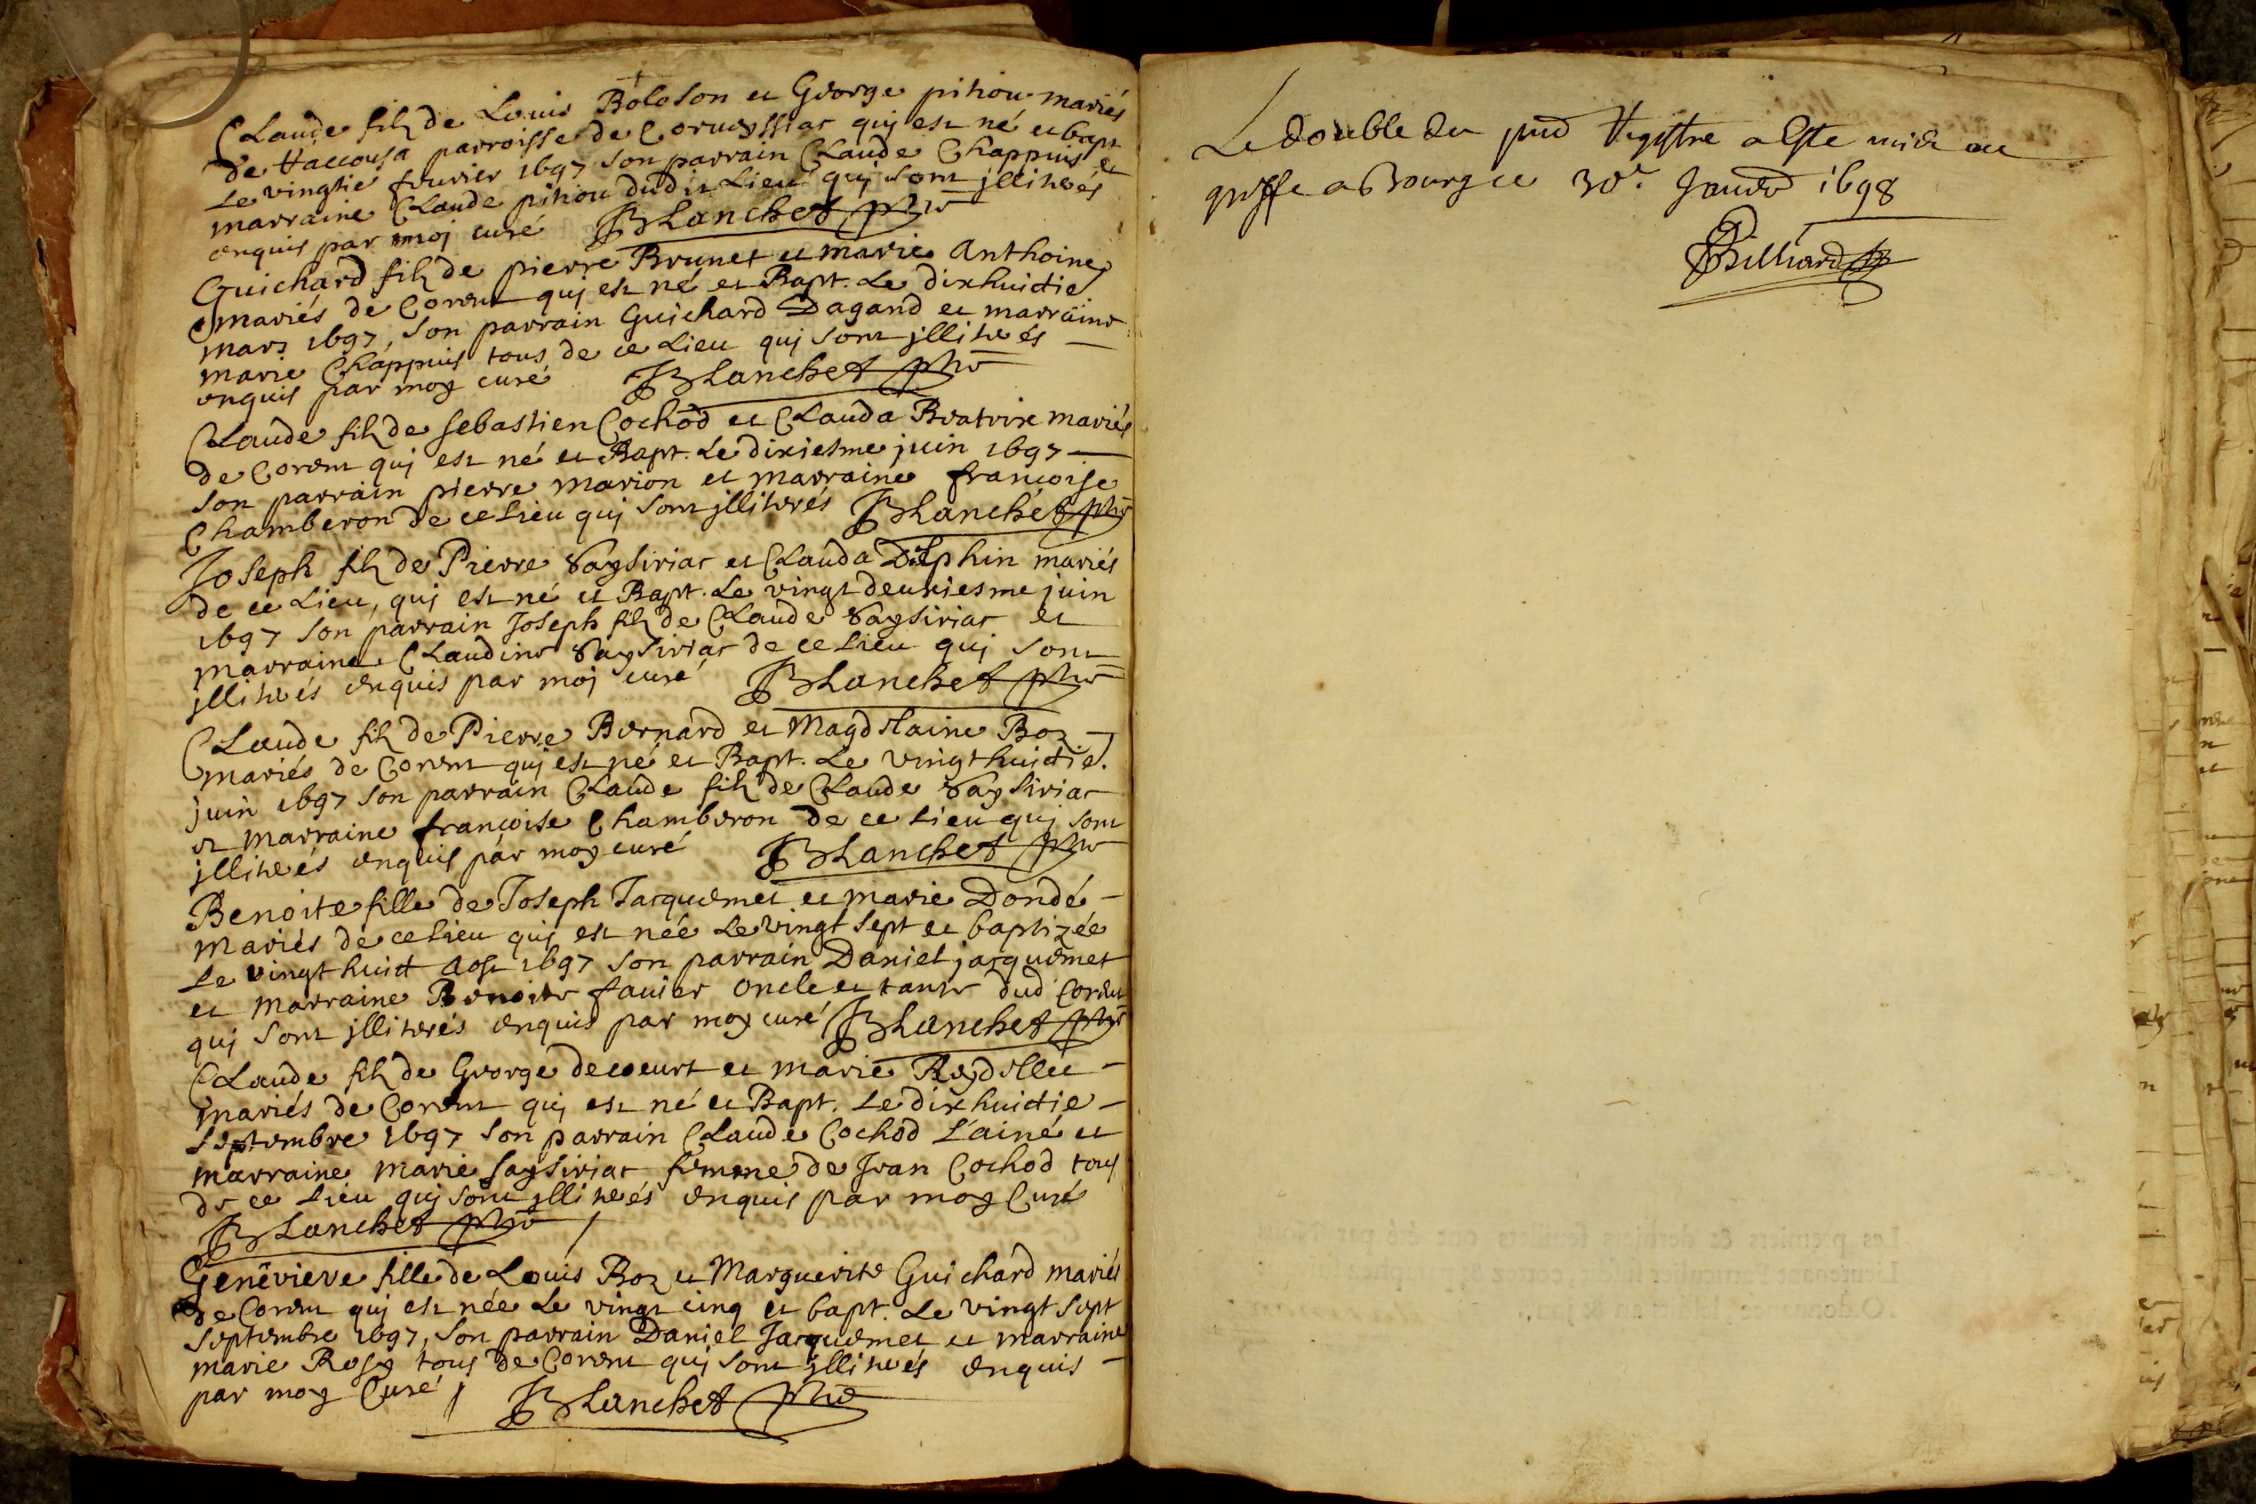 Claude filz de Louis Boloson et George pitiou mariés
de Vaccousa parroisse de Corveyssiac qui est né et bapt
Le vingtie fevrier 1697 son parrain Claude Chappuis et
marraine Claude pitiou dudit Lieu qui sont jlliterés
enquis par moj curé JBlanchet ptre
Guichard filz de pierre Brunet et marie Anthoine
mariés de Corent qui est né et Bapt. Le dixhuictie
mars 1697, son parrain Guichard Dagand et marraine
marie Chappuis tous de ce Lieu qui sont jlliterés
enquis par moy curé JBlanchet ptre
Claude filz de sebastien Cochod et Clauda Beatrix mariés
de Corent qui est né et Bapt. Le dixiesme juin 1697
son parrain pierre marion et marraine francoise
Chamberon de ce Lieu qui sont jlliterés JBlanchet ptre
Joseph filz de Pierre saysiriac et Clauda Delphin mariés
de ce Lieu, qui est né et Bapt. Le vingt deuxiesme juin
1697 son parrain Joseph filz de Claude saysiriac et
marraine Claudine saysiriac de ce Lieu qui sont
jlliterés enquis par moj curé JBlanchet ptre
Claude filz de Pierre Bernard et Magdelaine Boz
mariés de Corent qui est né et Bapt. Le vingthuictie.
juin 1697 son parrain Claude filz de Claude saysiriac
et marraine francoise Chamberon de ce Lieu qui sont
jlliterés enquis par moy curé JBlanchet ptre
Benoite fille de Joseph Jacquemet et marie Dondé
mariés de ce Lieu qui est née Le vingt sept et baptizée
Le vingt huict aost 1697 son parrain Daniel jacquemet
et marraine Benoite favier oncle et tante dud Corent
qui sont jlliterés enquis par moy curé JBlanchet ptre
Claude filz de George decoeurt et marie Reydellet
mariés de Corent qui est né et Bapt. Le dixhuictie
septembre 1697 son parrain Claude Cochod L'ainé et
marraine marie saysiriac femme de Jean Cochod tous
de ce Lieu qui sont jlliterés enquis par moy Curé
JBlanchet ptre
Genevieve fille de Louis Boz et Marguerite Guichard mariés
de Corent qui est née Le vingt cinq et bapt. Le vingt sept
septembre 1697, son parrain Daniel Jacquemet et marraine
marie Rosy tous de Corent qui sont jlliterés enquis
par moy Curé JBlanchet ptre
Le double du pnt Registre a este mis au
greffe a Bourg ce 30e. Janvr 1698
Billiard